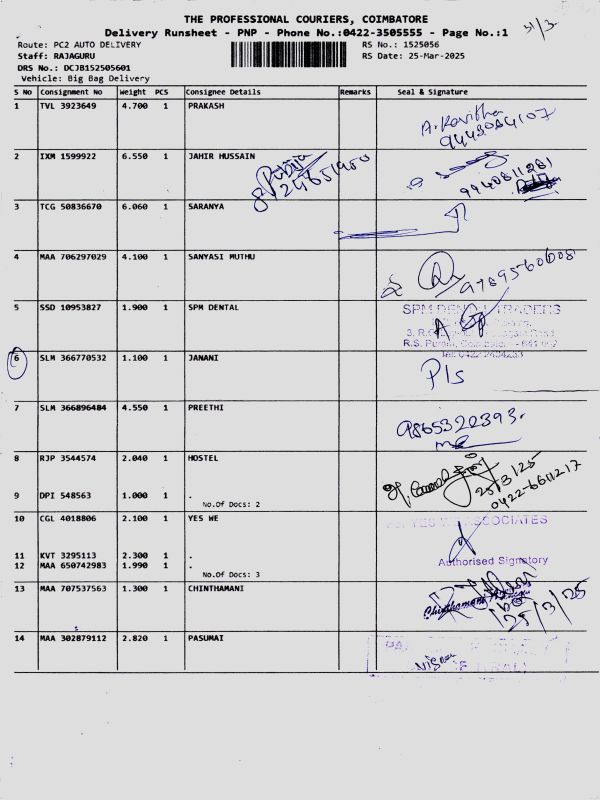 THE PROFESSIONAL COURIERS, COIMBATORE
Delivery Runsheet - PNP - Phone No.:0422-3505555 - Page No.:1
31/3
Route: PC2 AUTO DELIVERY
RS No.: 1525056
Staff: RAJAGURU
RS Date: 25-Mar-2025
DRS No.: DCJB152505601
Vehicle: Big Bag Delivery
S No Consignment No Weight PCS Consignee Details Remarks Seal & Signature
1 TVL 3923649 4.700 1 PRAKASH
A. Kavitha
9443064107
2 IXM 1599922 6.550 1 JAHIR HUSSAIN
9940811281
3 TCG 50836670 6.060 1 SARANYA
4 MAA 706297029 4.100 1 SANYASI MUTHU
9789560608
5 SSD 10953827 1.900 1 SPM DENTAL
SPM DENTAL TRADERS
R.S. Puram, Coimbatore - 641 002
Tel: 0422 2434233
6 SLM 366770532 1.100 1 JANANI
P/s
7 SLM 366896484 4.550 1 PREETHI
9865322393.
8 RJP 3544574 2.040 1 HOSTEL
25/3/25
0422-6611217
9 DPI 548563 1.000 1 .
No.Of Docs: 2
10 CGL 4018806 2.100 1 YES WE
YES WE ASSOCIATES
11 KVT 3295113 2.300 1 .
Authorised Signatory
12 MAA 650742983 1.990 1 .
No.Of Docs: 3
13 MAA 707537563 1.300 1 CHINTHAMANI
Chinthamani
25/3/25
14 MAA 302879112 2.820 1 PASUMAI